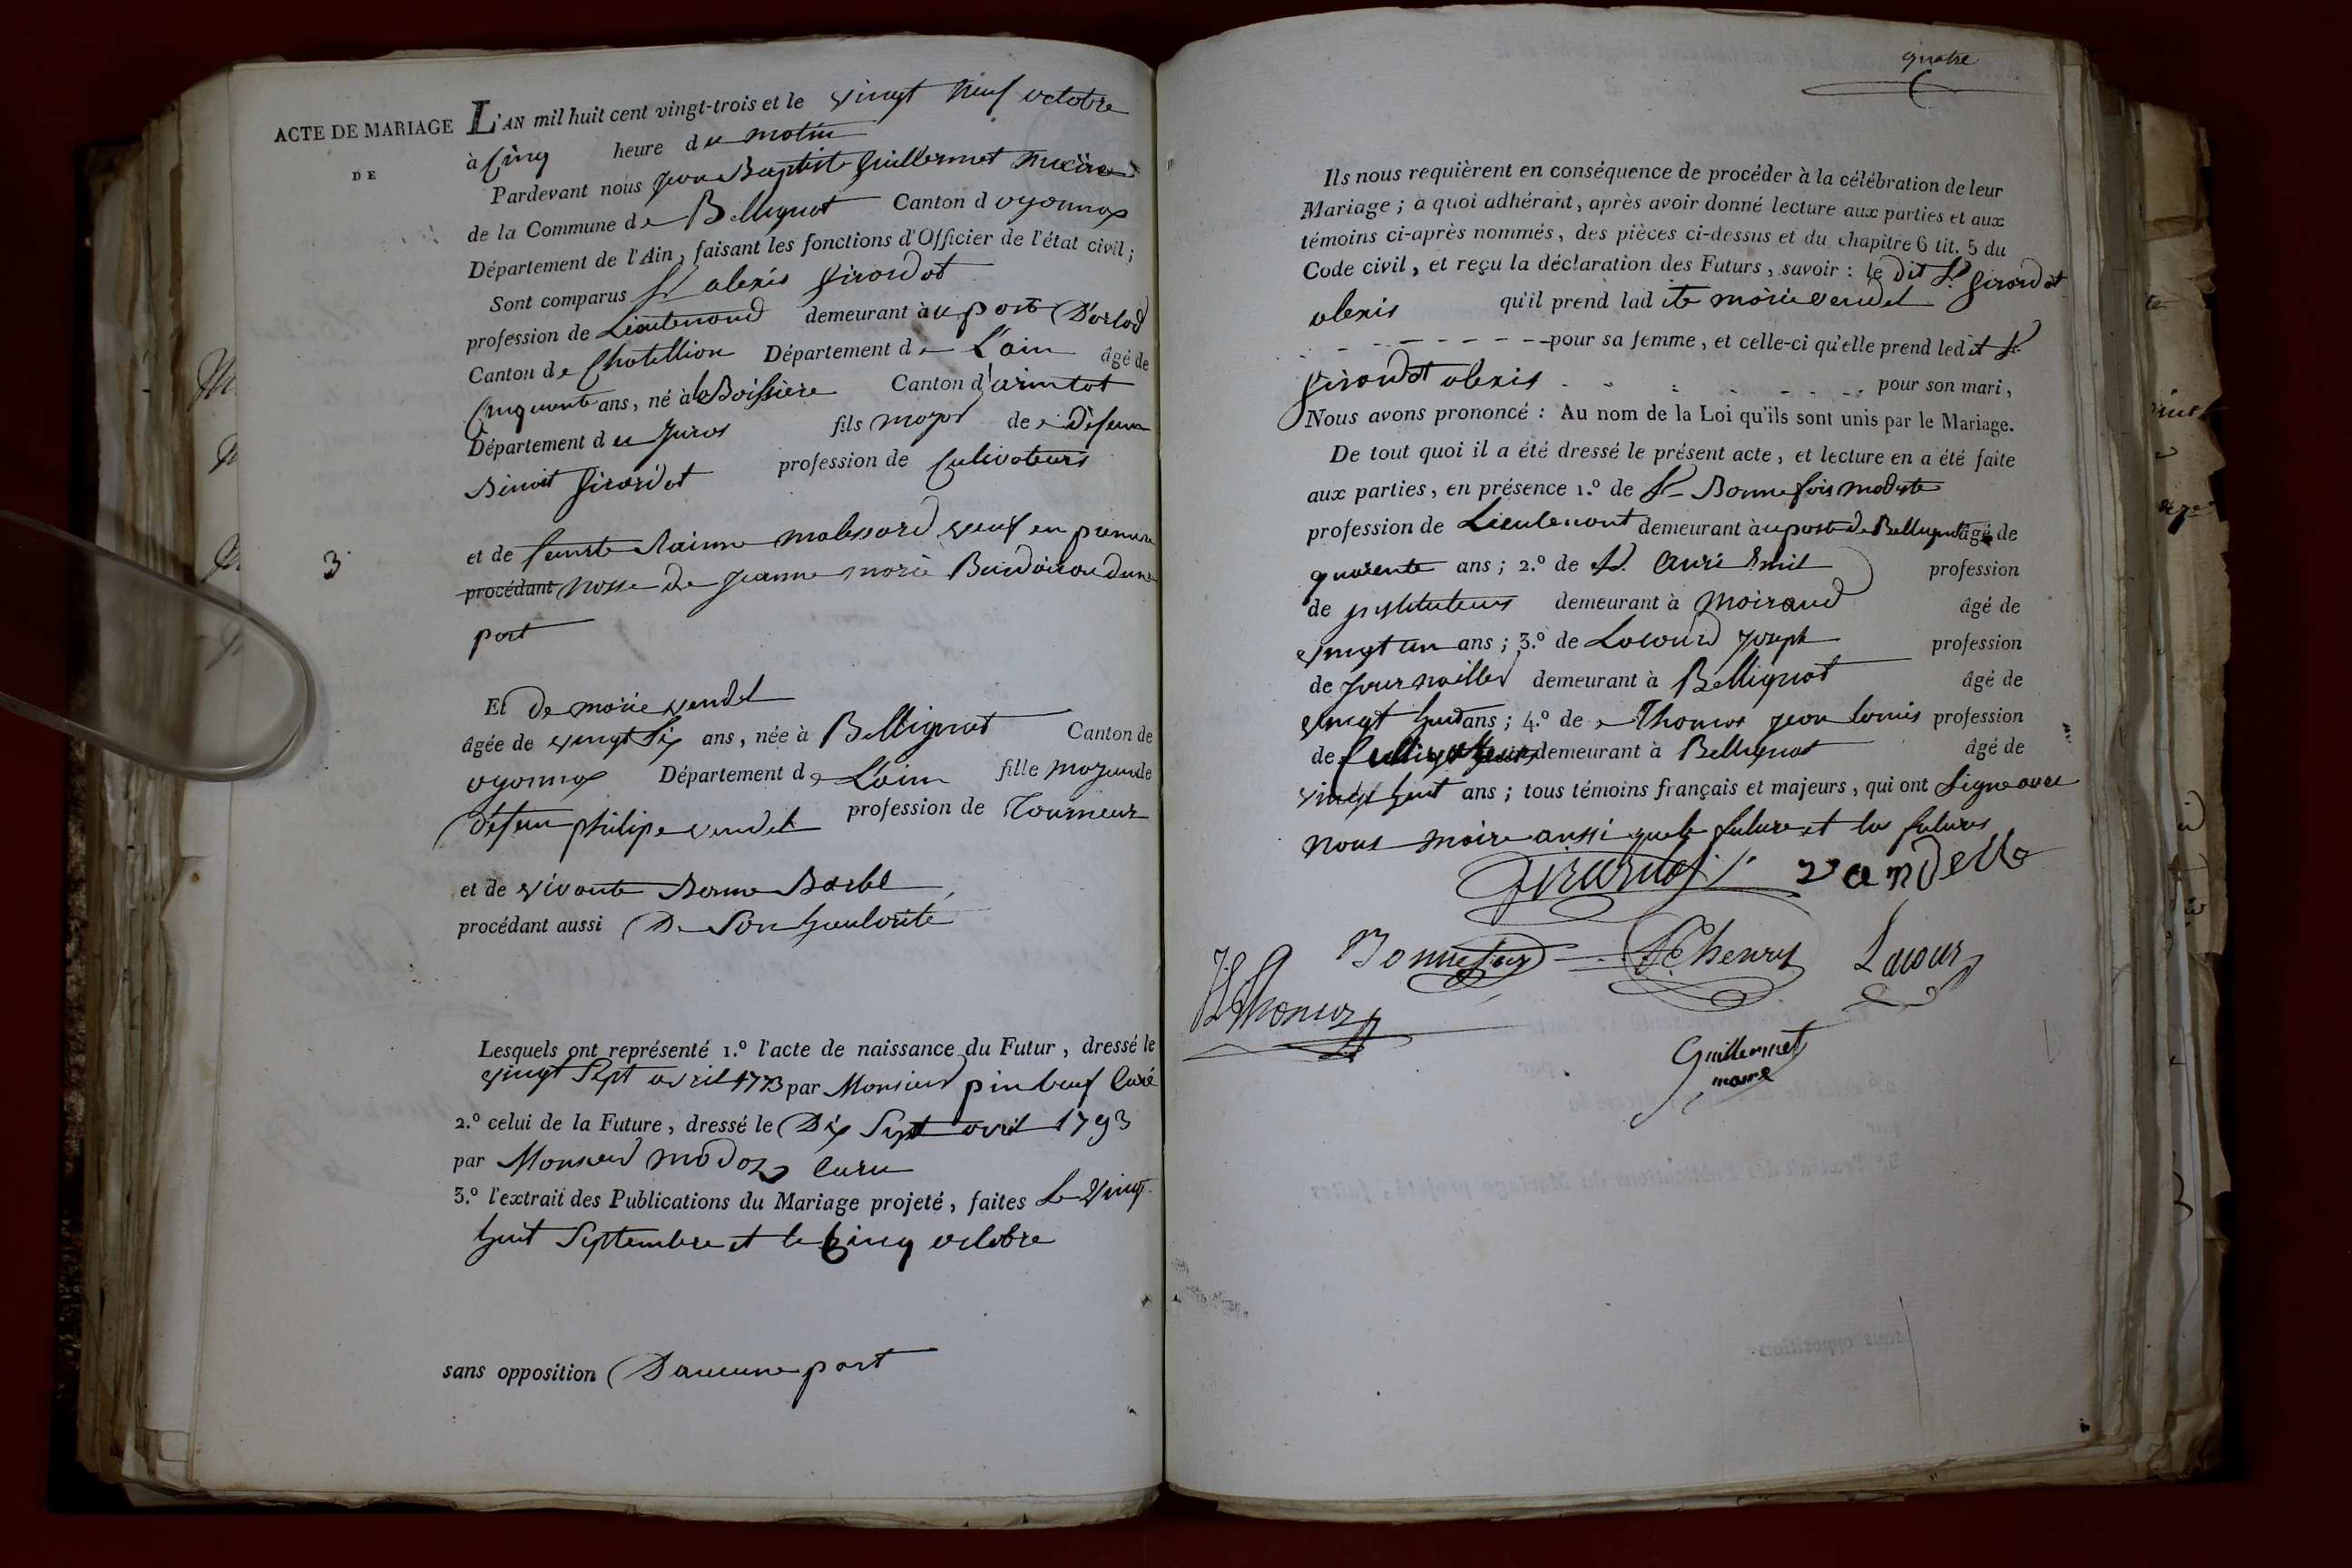 ACTE DE MARIAGE
DE
3
L'AN mil huit cent vingt-trois et le vingt neuf octobre
à Cinq heure du matin
Pardevant nous jean Baptiste Guillermet maire
de la Commune de Bellignat Canton d oyonnax
Département de l'Ain, faisant les fonctions d'Officier de l'état civil;
Sont comparus Sr alexis Girardot
profession de Lieutenand demeurant à u port D'orlod
Canton de Chatellion Département de L'ain âgé de
Cinquante ans, né à la Boissiere Canton d'arintot
Département du Jura fils major de Defun
Benoit Girardot profession de Cultivateurs
et de veuf en premier
procédant nosse de jeanne marie dune
part
Et de marie vendel
âgée de vingt six ans, née à Bellignat Canton de
oyonnax Département de L'ain fille majeur de
defun philipe vendel profession de Tourneur
et de vivante Barbe
procédant aussi De Son hautorité
Lesquels ont représenté 1.º l'acte de naissance du Futur, dressé le
vingt Sept avril 1773 par Monsieur pin beuf Curé
2.º celui de la Future, dressé le Dix Sept avril 1793
par Monsieur Curu
3.º l'extrait des Publications du Mariage projeté, faites Le Vingt
huit Septembre et le Cinq octobre
sans opposition D aucune part
quatre
Ils nous requièrent en conséquence de procéder à la célébration de leur
Mariage; à quoi adhérant, après avoir donné lecture aux parties et aux
témoins ci-après nommés, des pièces ci-dessus et du chapitre 6 tit. 5 du
Code civil, et reçu la déclaration des Futurs, savoir: le dit Sr Girardot
alexis qu'il prend lad ite marie vendel
pour sa femme, et celle-ci qu'elle prend led it Sr
Girardot alexis pour son mari,
Nous avons prononcé: Au nom de la Loi qu'ils sont unis par le Mariage.
De tout quoi il a été dressé le présent acte, et lecture en a été faite
aux parties, en présence 1.º de Sr Bonnefois modeste
profession de Lieutenant demeurant à u post de Bellignat âgé de
quarente ans; 2.º de Sr. Emil profession
de instituteur demeurant à Moirand âgé de
vingt un ans; 3.º de Lacourd joseph profession
de journailler demeurant à Bellignat âgé de
vingt huit ans; 4.º de Thomas jean Louis profession
de Cultivateur demeurant à Bellignat âgé de
vingt huit ans; tous témoins français et majeurs, qui ont Signe avec
nous maire aussi que le future et la future
Girardot vandelle
Bonnefoy Henry Lacour
JL Thomas
Guillermet
maire